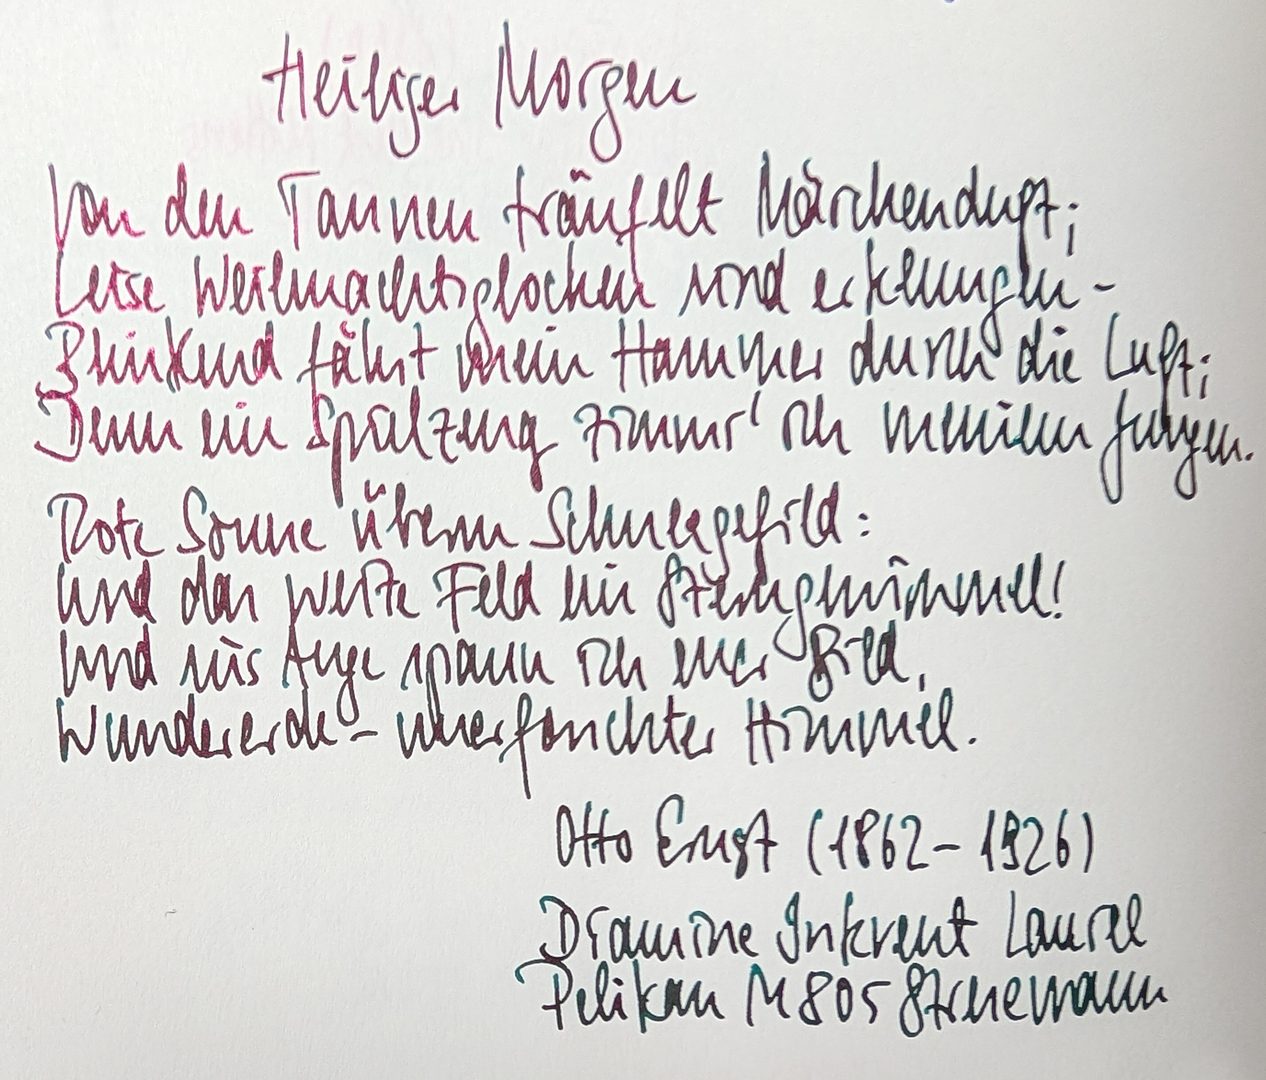 Heiliger Morgen
Von den Tannen träufelt Märchenduft;
Leise Weihnachtsglocken sind erklungen -
Blinkend fährt mein Hammer durch die Luft;
Denn ein Spielzeug zimmr' ich meinem Jungen.
Rote Sonne überm Schneegefild:
Und das weite Feld ein Sterngewimmel!
Und ins Auge spann ich euer Bild,
Wundererde - unerforschter Himmel.
Otto Ernst (1862-1926)
Diamine Inkvent Laurel
Pelikan M805 Stresemann